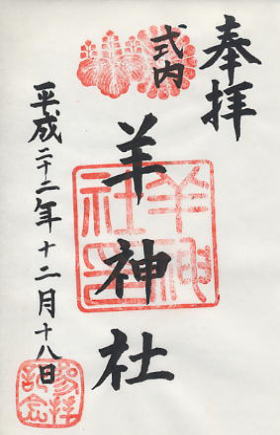 奉拝
式内
羊神社
羊神
社印
平成二十二年十二月十八日
参拝
記念